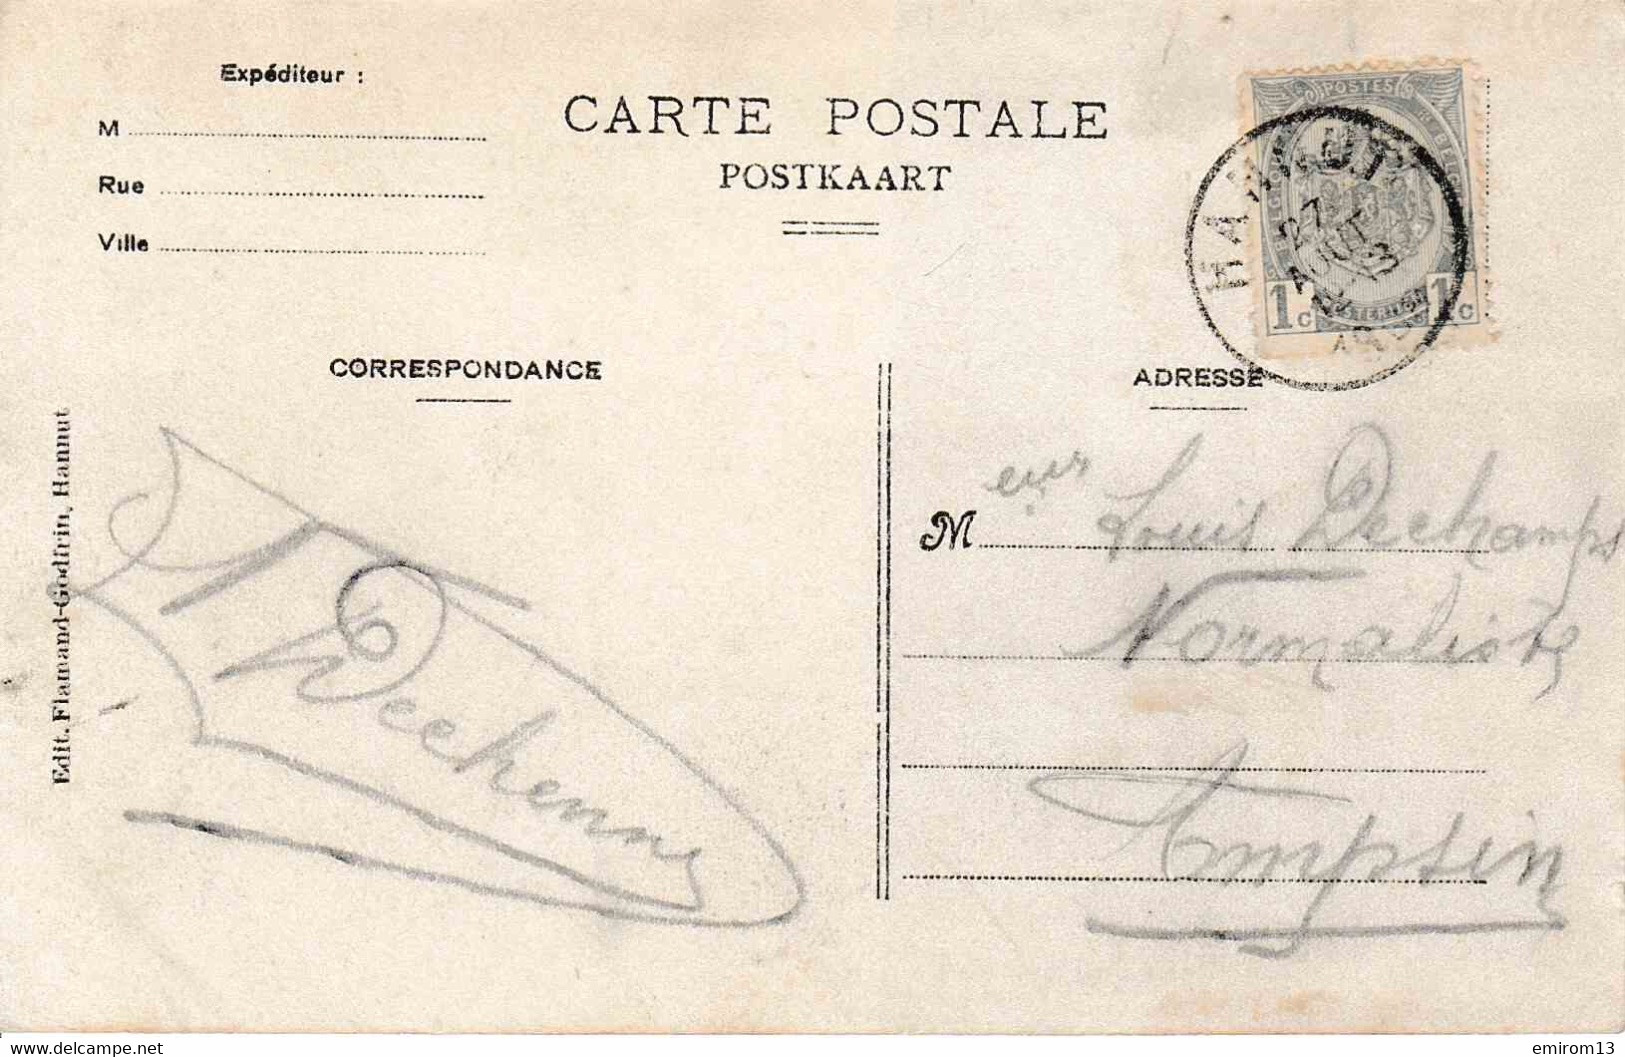 Expéditeur :
M
Rue
Ville
CARTE POSTALE
POSTKAART
POSTES
HANNUT
27
AOUT
13
1c 1c
CORRESPONDANCE
ADRESSE
Edit. Flamand-Godfrin, Hannut
Dechenne
M eur Louis Dechamps
Normaliste
Ampsin
www.delcampe.net
emirom13